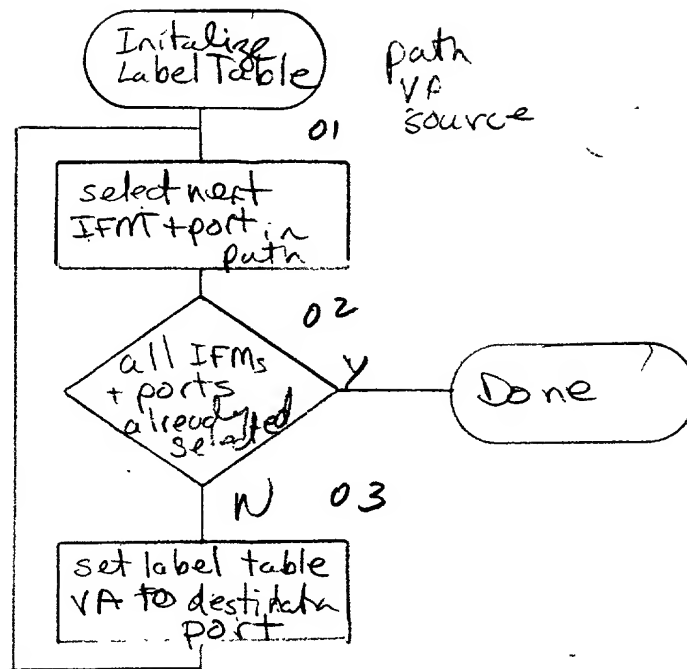 Initalize
Label Table
path
VA
source
01
select next
IFM + port in
path
02
all IFMs
+ ports
already
selected
Y
Done
N 03
set label table
VA to
port